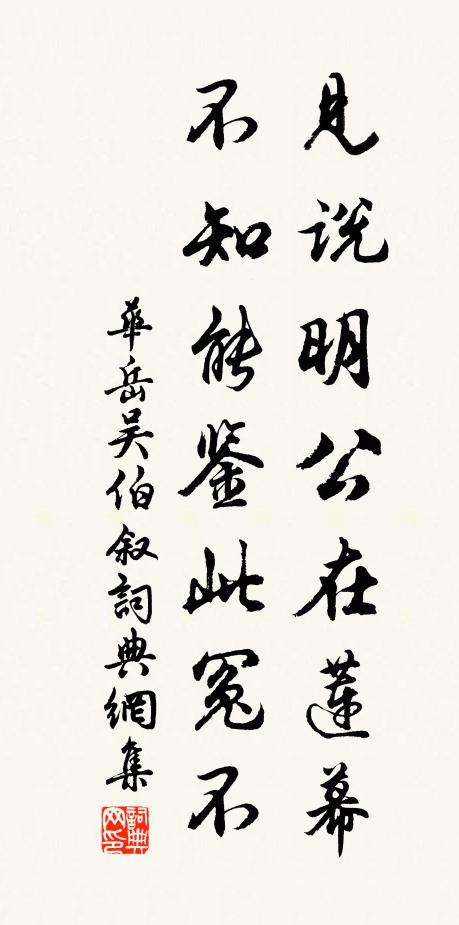 見説明公在蓮幕
不知能鉴此冤不
華岳吴伯叙詞典網集
詞典网印